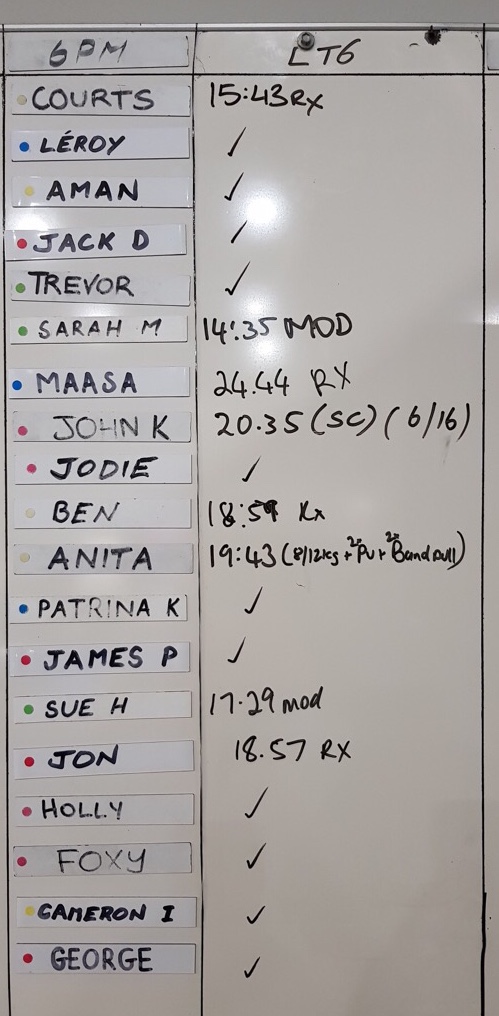 6PM LT6
COURTS 15:43 RX
LÉROY ✓
AMAN ✓
JACK D ✓
TREVOR ✓
SARAH M 14:35 MOD
MAASA 24.44 RX
JOHN K 20.35 (SC) (6/16)
JODIE ✓
BEN 18:59 Rx
ANITA 19:43 (8/12kg + PU + Band pull)
PATRINA K ✓
JAMES P ✓
SUE H 17.29 mod
JON 18.57 RX
HOLLY ✓
FOXY ✓
CAMERON I ✓
GEORGE ✓